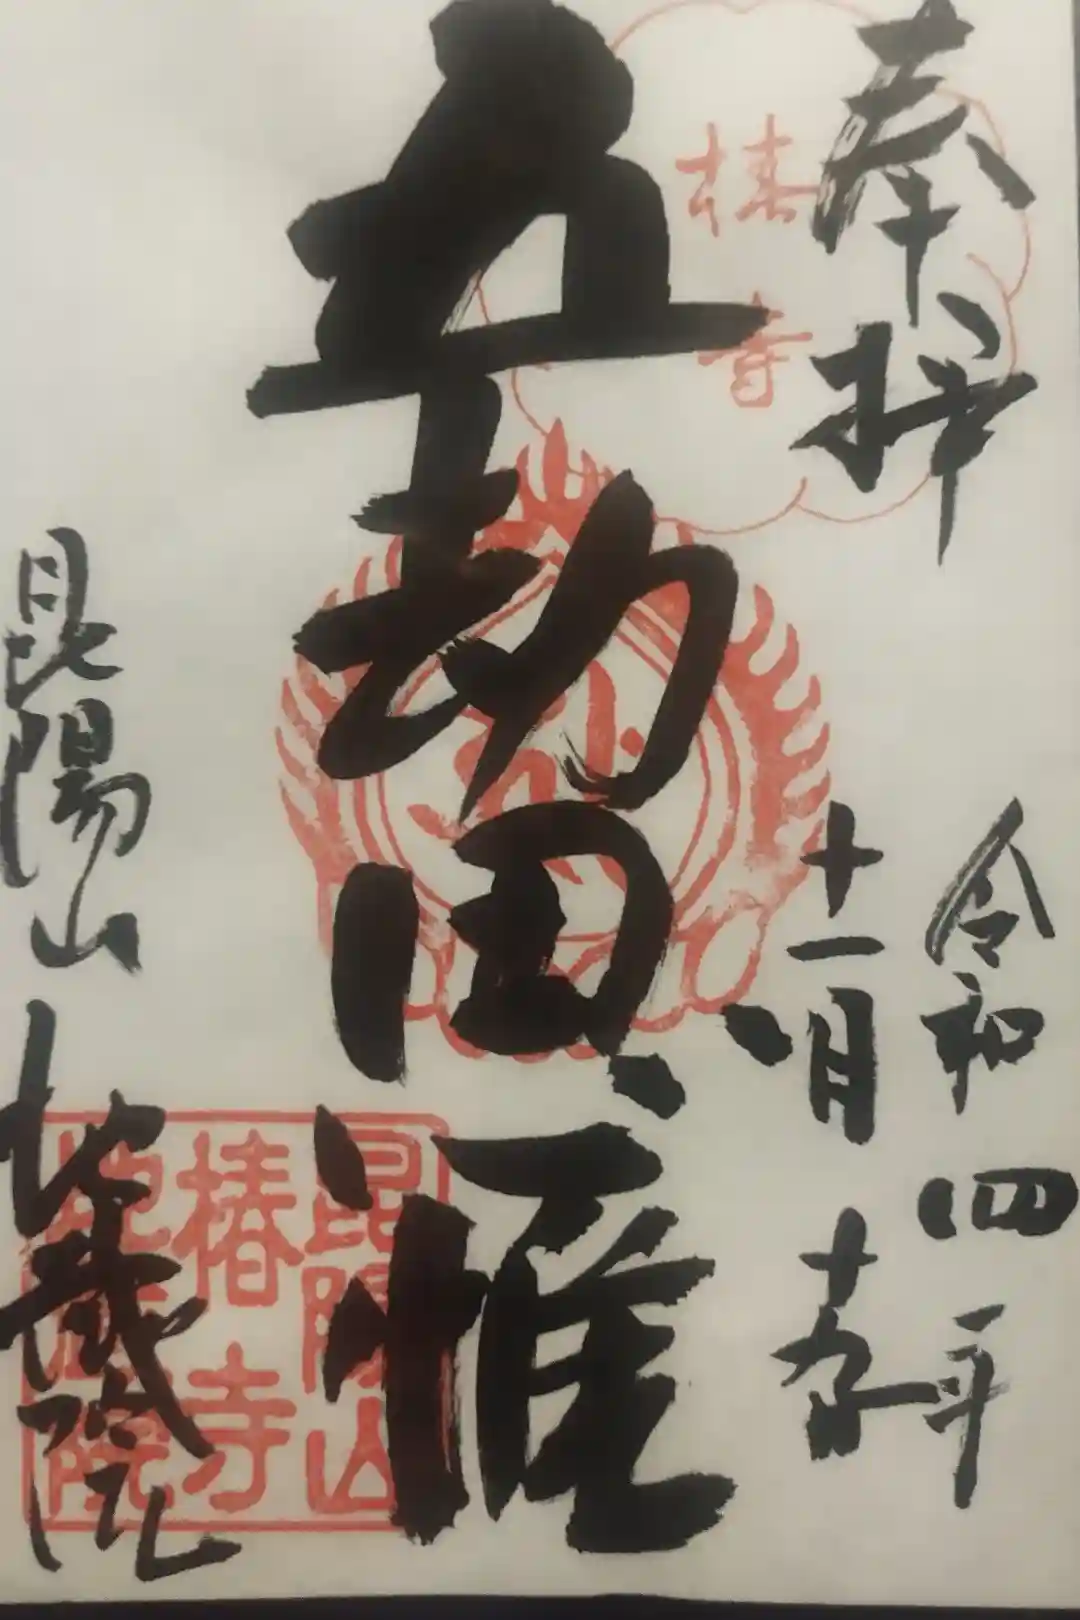 奉拝
令和四年
十一月
椿寺
五劫思惟
昆陽山
地蔵院
昆陽山
椿寺
地蔵院